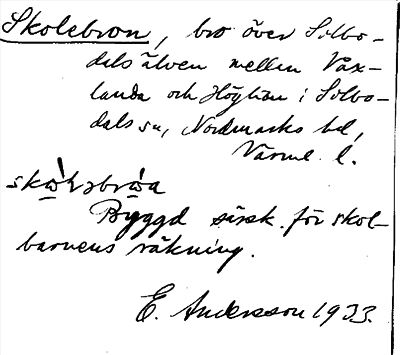 Skolebron, bro över Silbo-
dals älven mellanVäx-
landa och Höglian i Silbo-
dals sn, Nordmarks hd,
Värml. l.
Byggd särsk. för skol-
barnens räkning.
E. Andersson 1933.